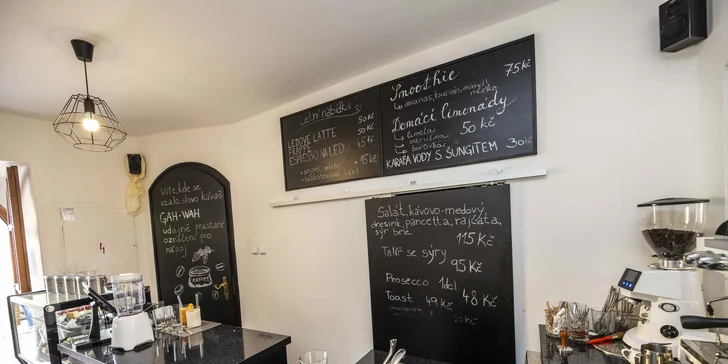 Víte, kde se
vzalo slovo káva?
GAH-WAH
údajně prastaré
označení pro
nápoj
COFFEE
Letní nabídka
LEDOVÉ LATTE 50 Kč
FRAPPE 50 Kč
ESPRESSO NA LEDU 45 Kč
+ 15 Kč
Smoothie 75 Kč
ananas, banán,
mléko
Domácí limonády
limeta
okurková 50 Kč
borůvka
KARAFA VODY S ŠUNGITEM 30 Kč
Salát, kávovo-medový
dresink, pancetta, rajčata,
sýr brie 115 Kč
Talíř se sýry
95 Kč
Prosecco 1dcl
48 Kč
Toast 49 Kč